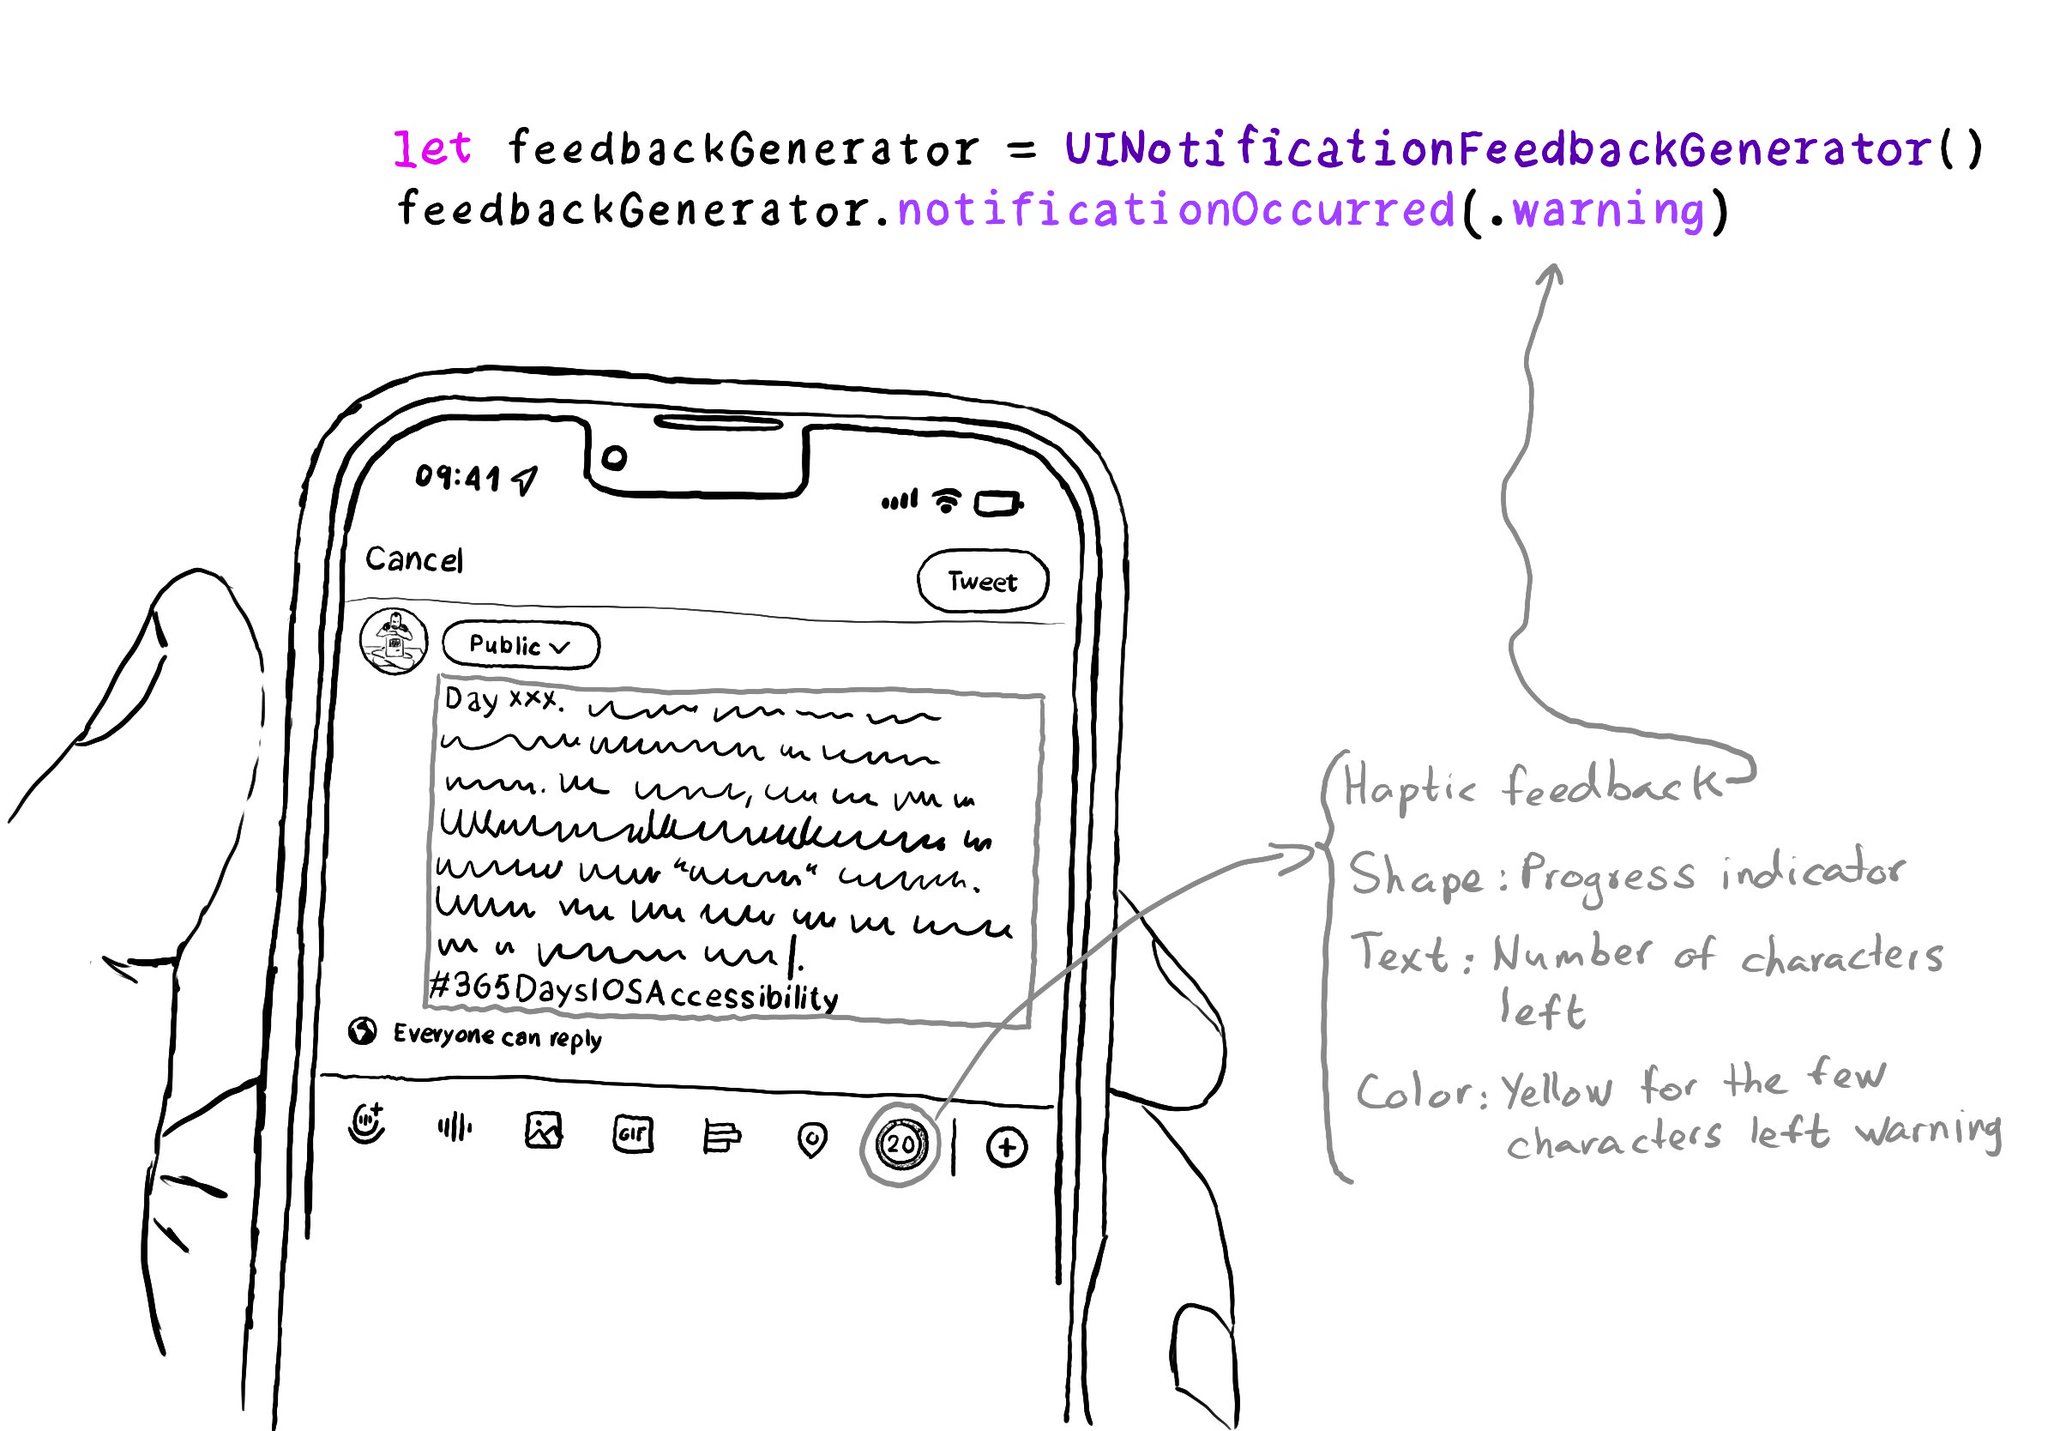 let feedbackGenerator = UINotificationFeedbackGenerator()
feedbackGenerator.notificationOccurred(.warning)
09:41
Cancel
Tweet
Public
Day xxx.
#365DaysIOSAccessibility
Everyone can reply
GIF
20
Haptic feedback
Shape: Progress indicator
Text: Number of characters
left
Color: Yellow for the few
characters left warning